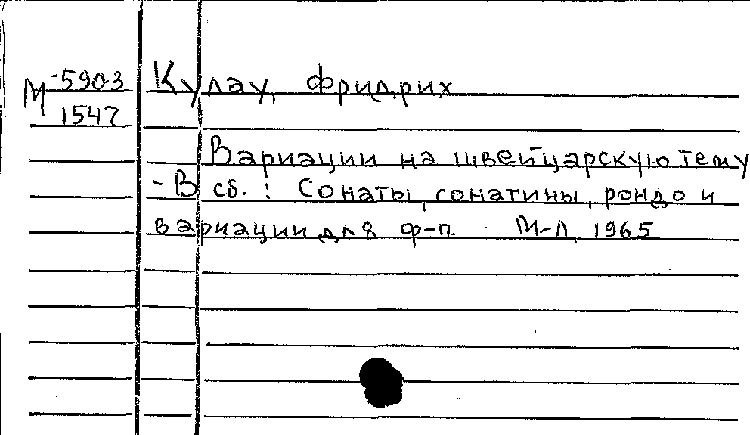 М-5903
1547
Кулау, Фридрих
Вариации на швейцарскую тему
- В сб.: Сонаты, сонатины, рондо и
вариации для ф-п. М-Л, 1965